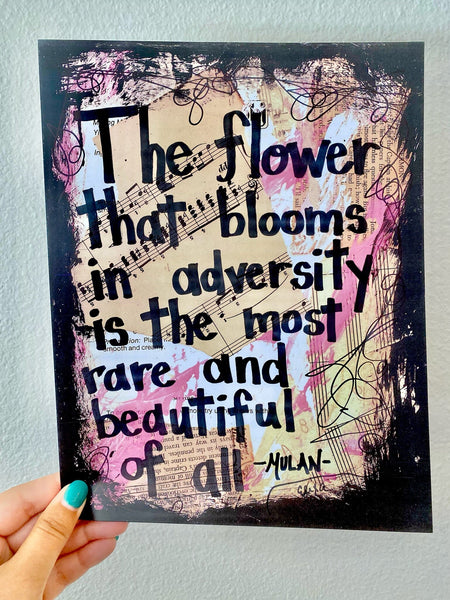 The flower
that blooms
in adversity
is the most
rare and
beautiful
of all -MULAN-